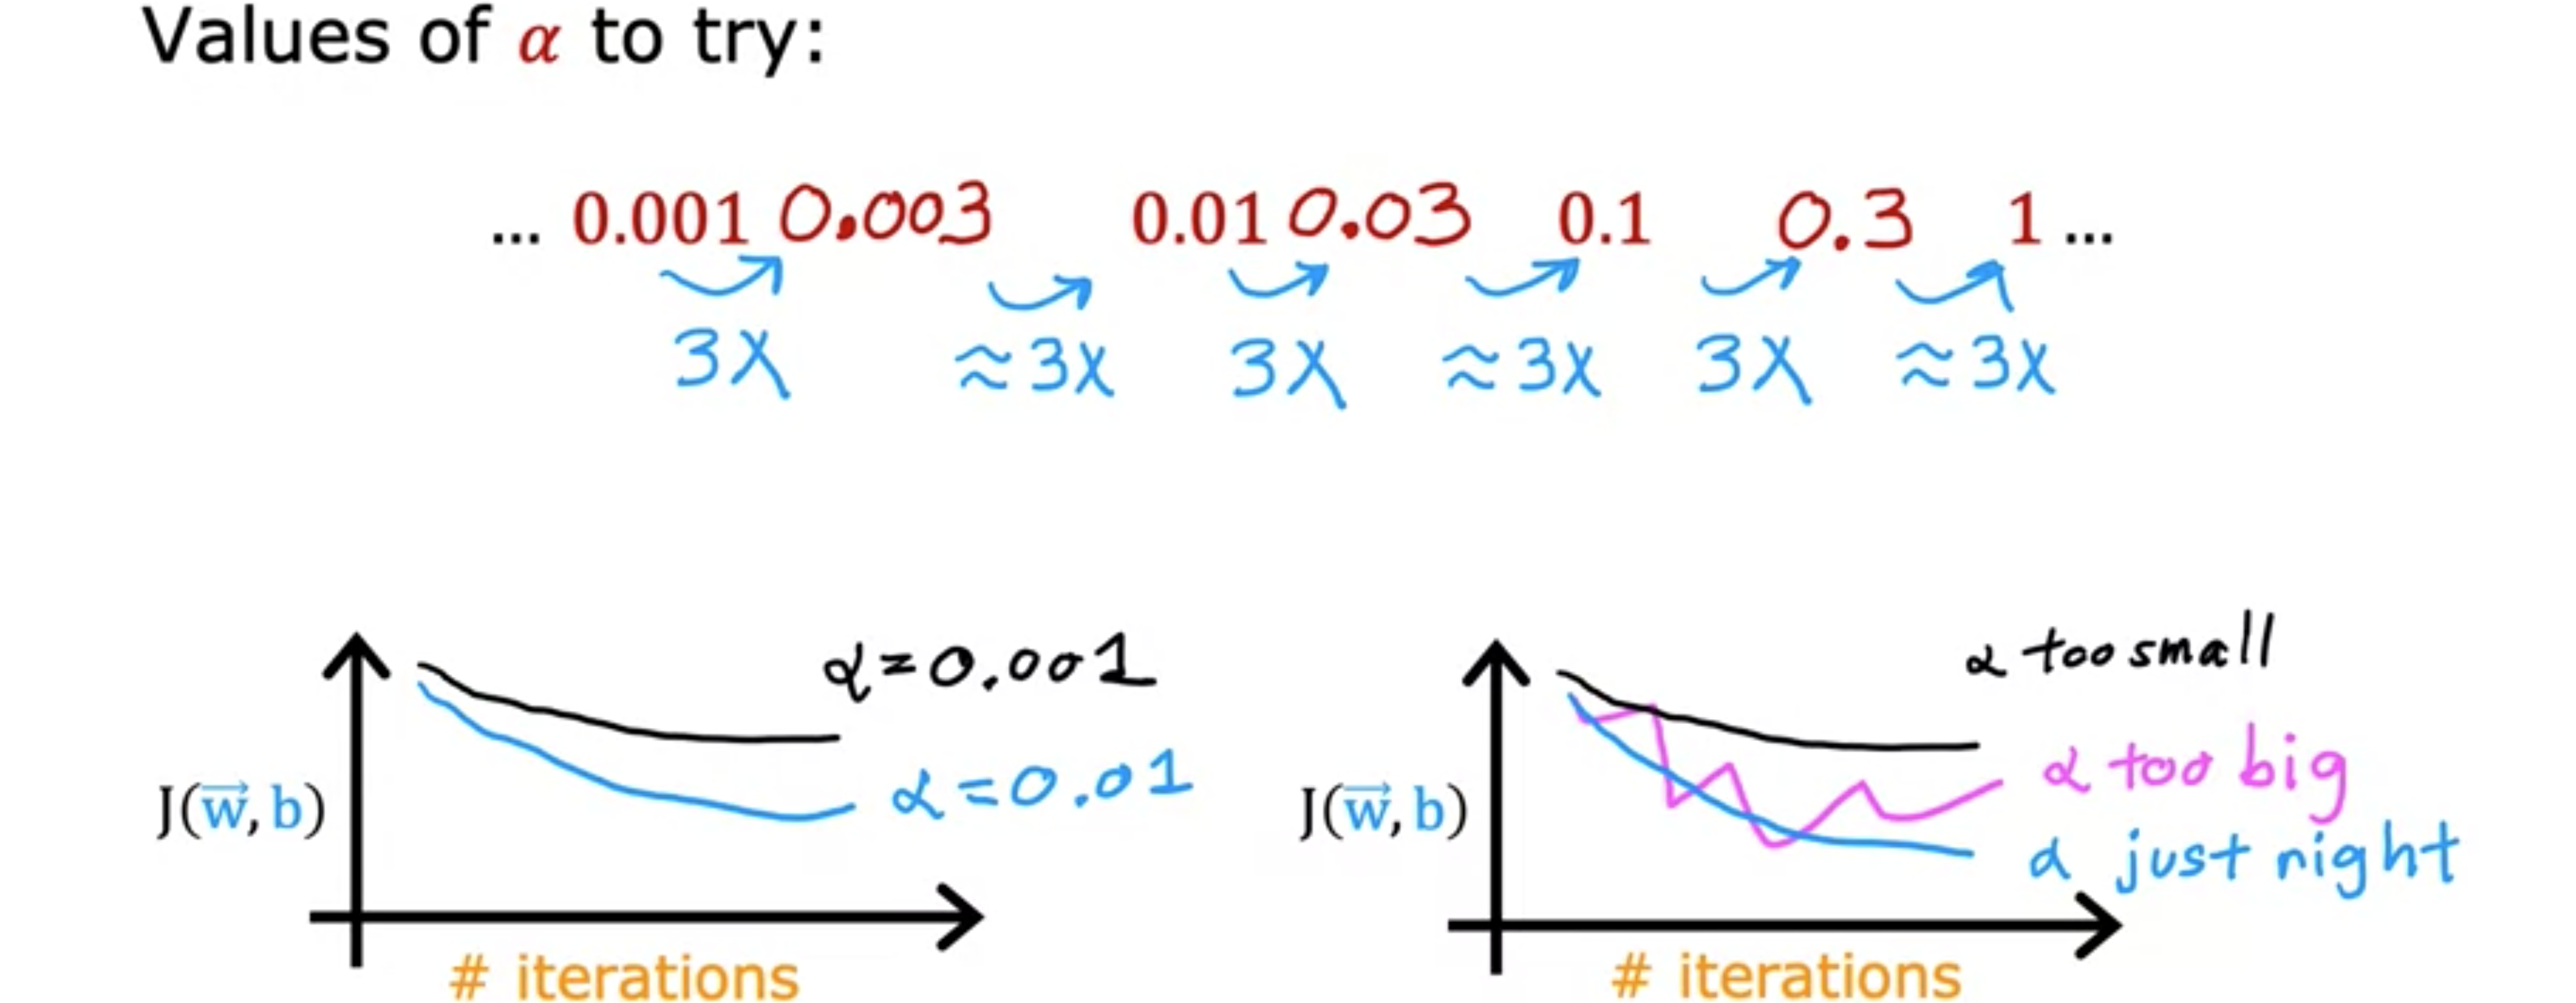 Values of α to try:
... 0.001 0.003 0.01 0.03 0.1 0.3 1 ...
3X ≈3X 3X ≈3X 3X ≈3X
α=0.001
α=0.01
J(w⃗, b)
# iterations
α too small
α too big
J(w⃗, b)
α just right
# iterations